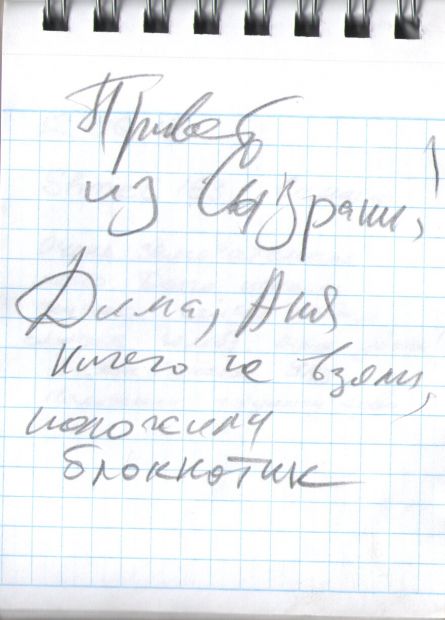 Привет
из Сызрани,!
Дима, Аня
ничего не взяли,
положили
блокнотик